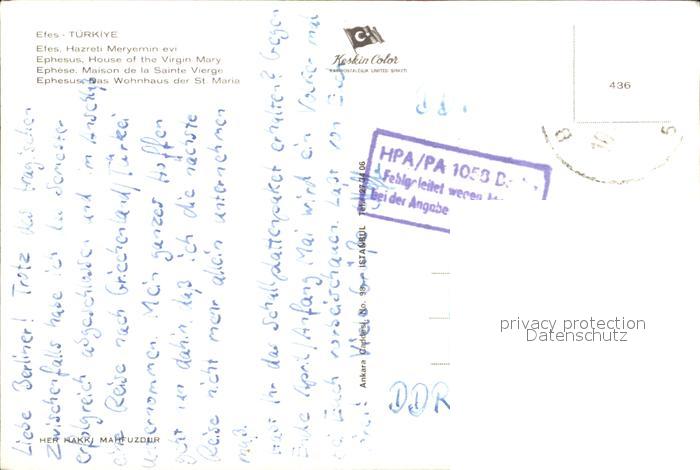 Efes - TÜRKİYE
Efes, Hazreti Meryemin evi
Ephesus, House of the Virgin Mary
Ephése, Maison de la Sainte Vierge
Ephesus, Das Wohnhaus der St. Maria
Keskin Color
436
HPA/PA 1058
Fehlgeleitet wegen
bei der Angabe
Ankara Caddesi, No. 98 - ISTANBUL
Liebe Berliner! Trotz des tragischen
Zwischenfalls habe ich das Semester
erfolgreich abgeschlossen und im Anschluß
eine Reise nach Griechenland/Türkei
unternommen. Mein ganzes Hoffen
geht nun dahin, daß ich die nächste
Reise nicht mehr allein unternehmen
muß.
Habt ihr das Schallplattenpaket erhalten? Gegen
Ende April/Anfang Mai wird ein
bei Euch vorbeischauen. Laßt von Euch
DDR
HER HAKKI MAHFUZDUR
privacy protection
Datenschutz